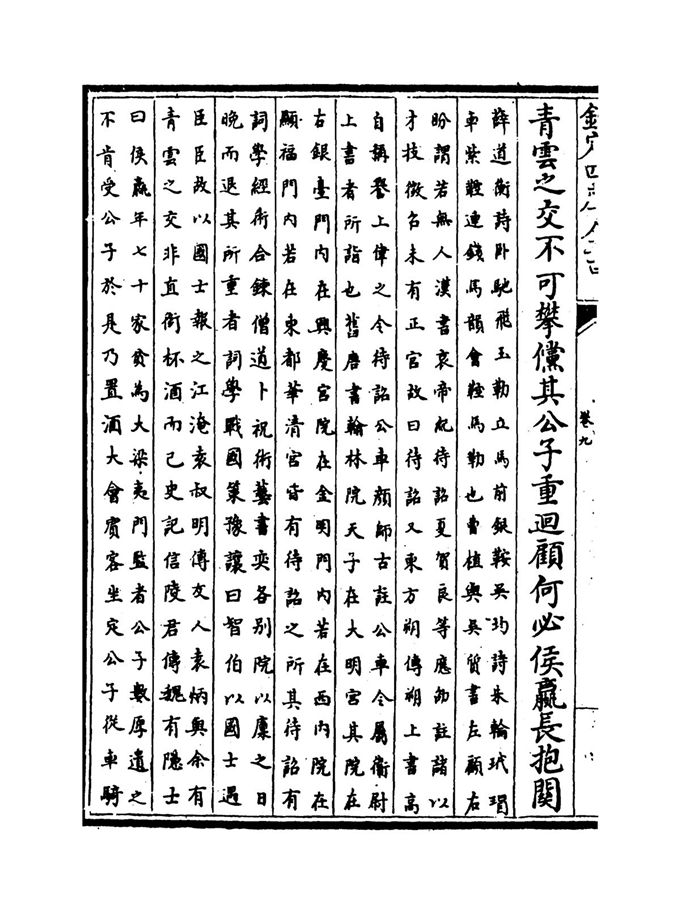 欽定四庫全書
卷九
青雲之交不可攀儻其公子重迴顧何必侯嬴長抱關
薛道衡詩卧馳飛玉勒立馬前銀鞍吳均詩朱輪玳瑁
車紫鞚連錢馬韻會鞚馬勒也曹植與吳質書左顧右
盼謂若無人漢書哀帝紀待詔夏賀良等應劭註諸以
才技徵召未有正官故曰待詔又東方朔傳朔上書高
自稱譽上偉之令待詔公車顔師古註公車令屬衛尉
上書者所詣也舊唐書翰林院天子在大明宮其院在
右銀臺門内在興慶宮院在金明門内若在西内院在
顯福門内若在東都華清宮皆有待詔之所其待詔有
詞學經術合錬僧道卜祝術藝書奕各别院以廩之日
晚而退其所重者詞學戰國策豫讓曰智伯以國士遇
臣臣故以國士報之江淹袁叔明傳友人袁炳與余有
青雲之交非直銜杯酒而已史記信陵君傳魏有隱士
曰侯嬴年七十家貧為大梁夷門監者公子數厚遺之
不肯受公子於是乃置酒大會賔客坐定公子從車騎